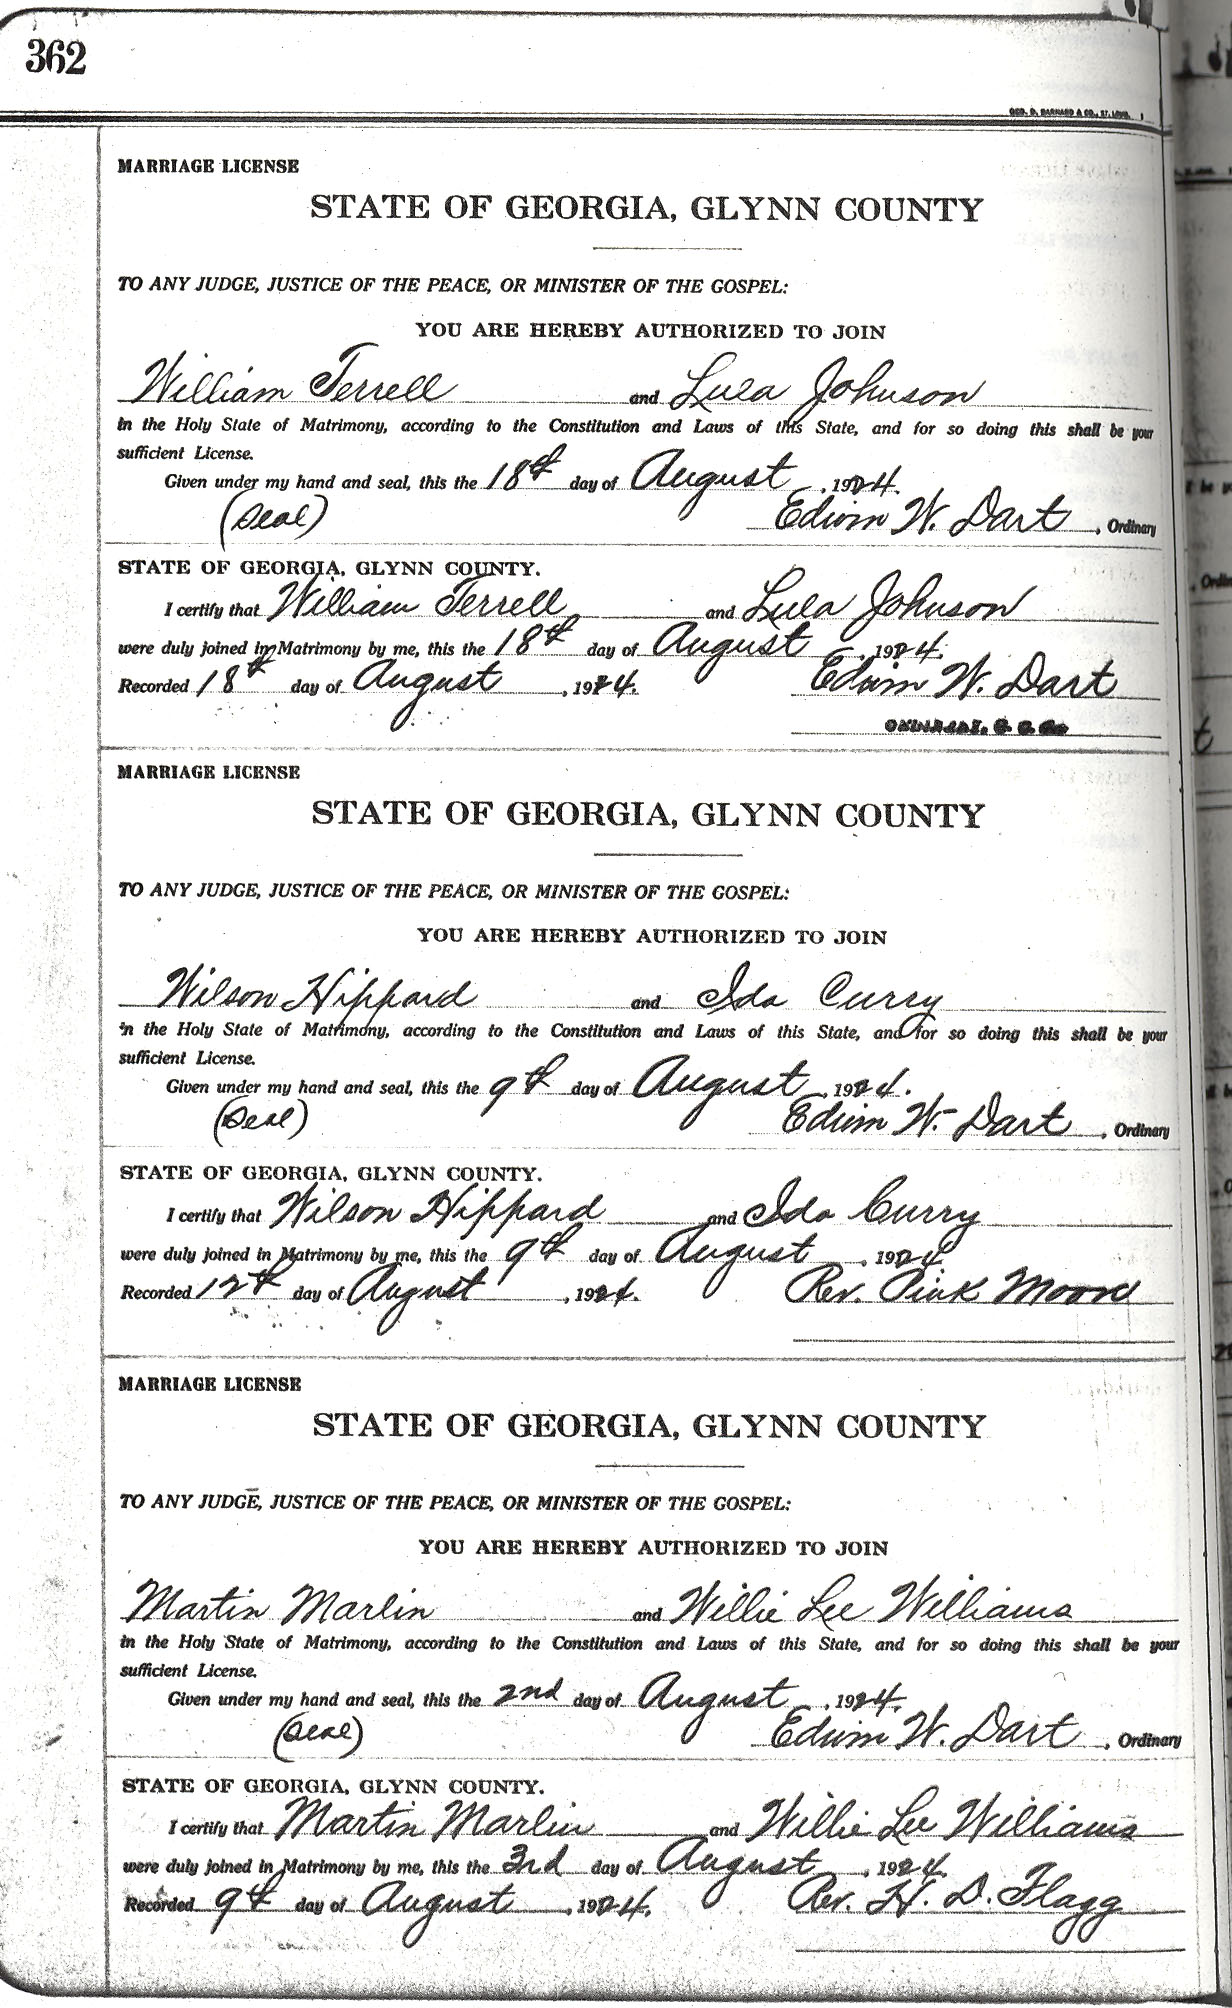 362
GEO. D. BARNARD & CO., ST. LOUIS.
MARRIAGE LICENSE
STATE OF GEORGIA, GLYNN COUNTY
TO ANY JUDGE, JUSTICE OF THE PEACE, OR MINISTER OF THE GOSPEL:
YOU ARE HEREBY AUTHORIZED TO JOIN
William Terrell and Lula Johnson
in the Holy State of Matrimony, according to the Constitution and Laws of this State, and for so doing this shall be your
sufficient License.
Given under my hand and seal, this the 18th day of August, 1924.
(Seal) Edwin W. Dart, Ordinary
STATE OF GEORGIA, GLYNN COUNTY.
I certify that William Terrell and Lula Johnson
were duly joined in Matrimony by me, this the 18th day of August, 1924.
Recorded 18th day of August, 1924. Edwin W. Dart
MARRIAGE LICENSE
STATE OF GEORGIA, GLYNN COUNTY
TO ANY JUDGE, JUSTICE OF THE PEACE, OR MINISTER OF THE GOSPEL:
YOU ARE HEREBY AUTHORIZED TO JOIN
Wilson Hippard and Ida Curry
in the Holy State of Matrimony, according to the Constitution and Laws of this State, and for so doing this shall be your
sufficient License.
Given under my hand and seal, this the 9th day of August, 1924.
(Seal) Edwin W. Dart, Ordinary
STATE OF GEORGIA, GLYNN COUNTY.
I certify that Wilson Hippard and Ida Curry
were duly joined in Matrimony by me, this the 9th day of August, 1924.
Recorded 12th day of August, 1924. Rev. Pink Moore
MARRIAGE LICENSE
STATE OF GEORGIA, GLYNN COUNTY
TO ANY JUDGE, JUSTICE OF THE PEACE, OR MINISTER OF THE GOSPEL:
YOU ARE HEREBY AUTHORIZED TO JOIN
Martin Marlin and Willie Lee Williams
in the Holy State of Matrimony, according to the Constitution and Laws of this State, and for so doing this shall be your
sufficient License.
Given under my hand and seal, this the 2nd day of August, 1924.
(Seal) Edwin W. Dart, Ordinary
STATE OF GEORGIA, GLYNN COUNTY.
I certify that Martin Marlin and Willie Lee Williams
were duly joined in Matrimony by me, this the 3rd day of August, 1924.
Recorded 9th day of August, 1924. Rev. H. D. Flagg